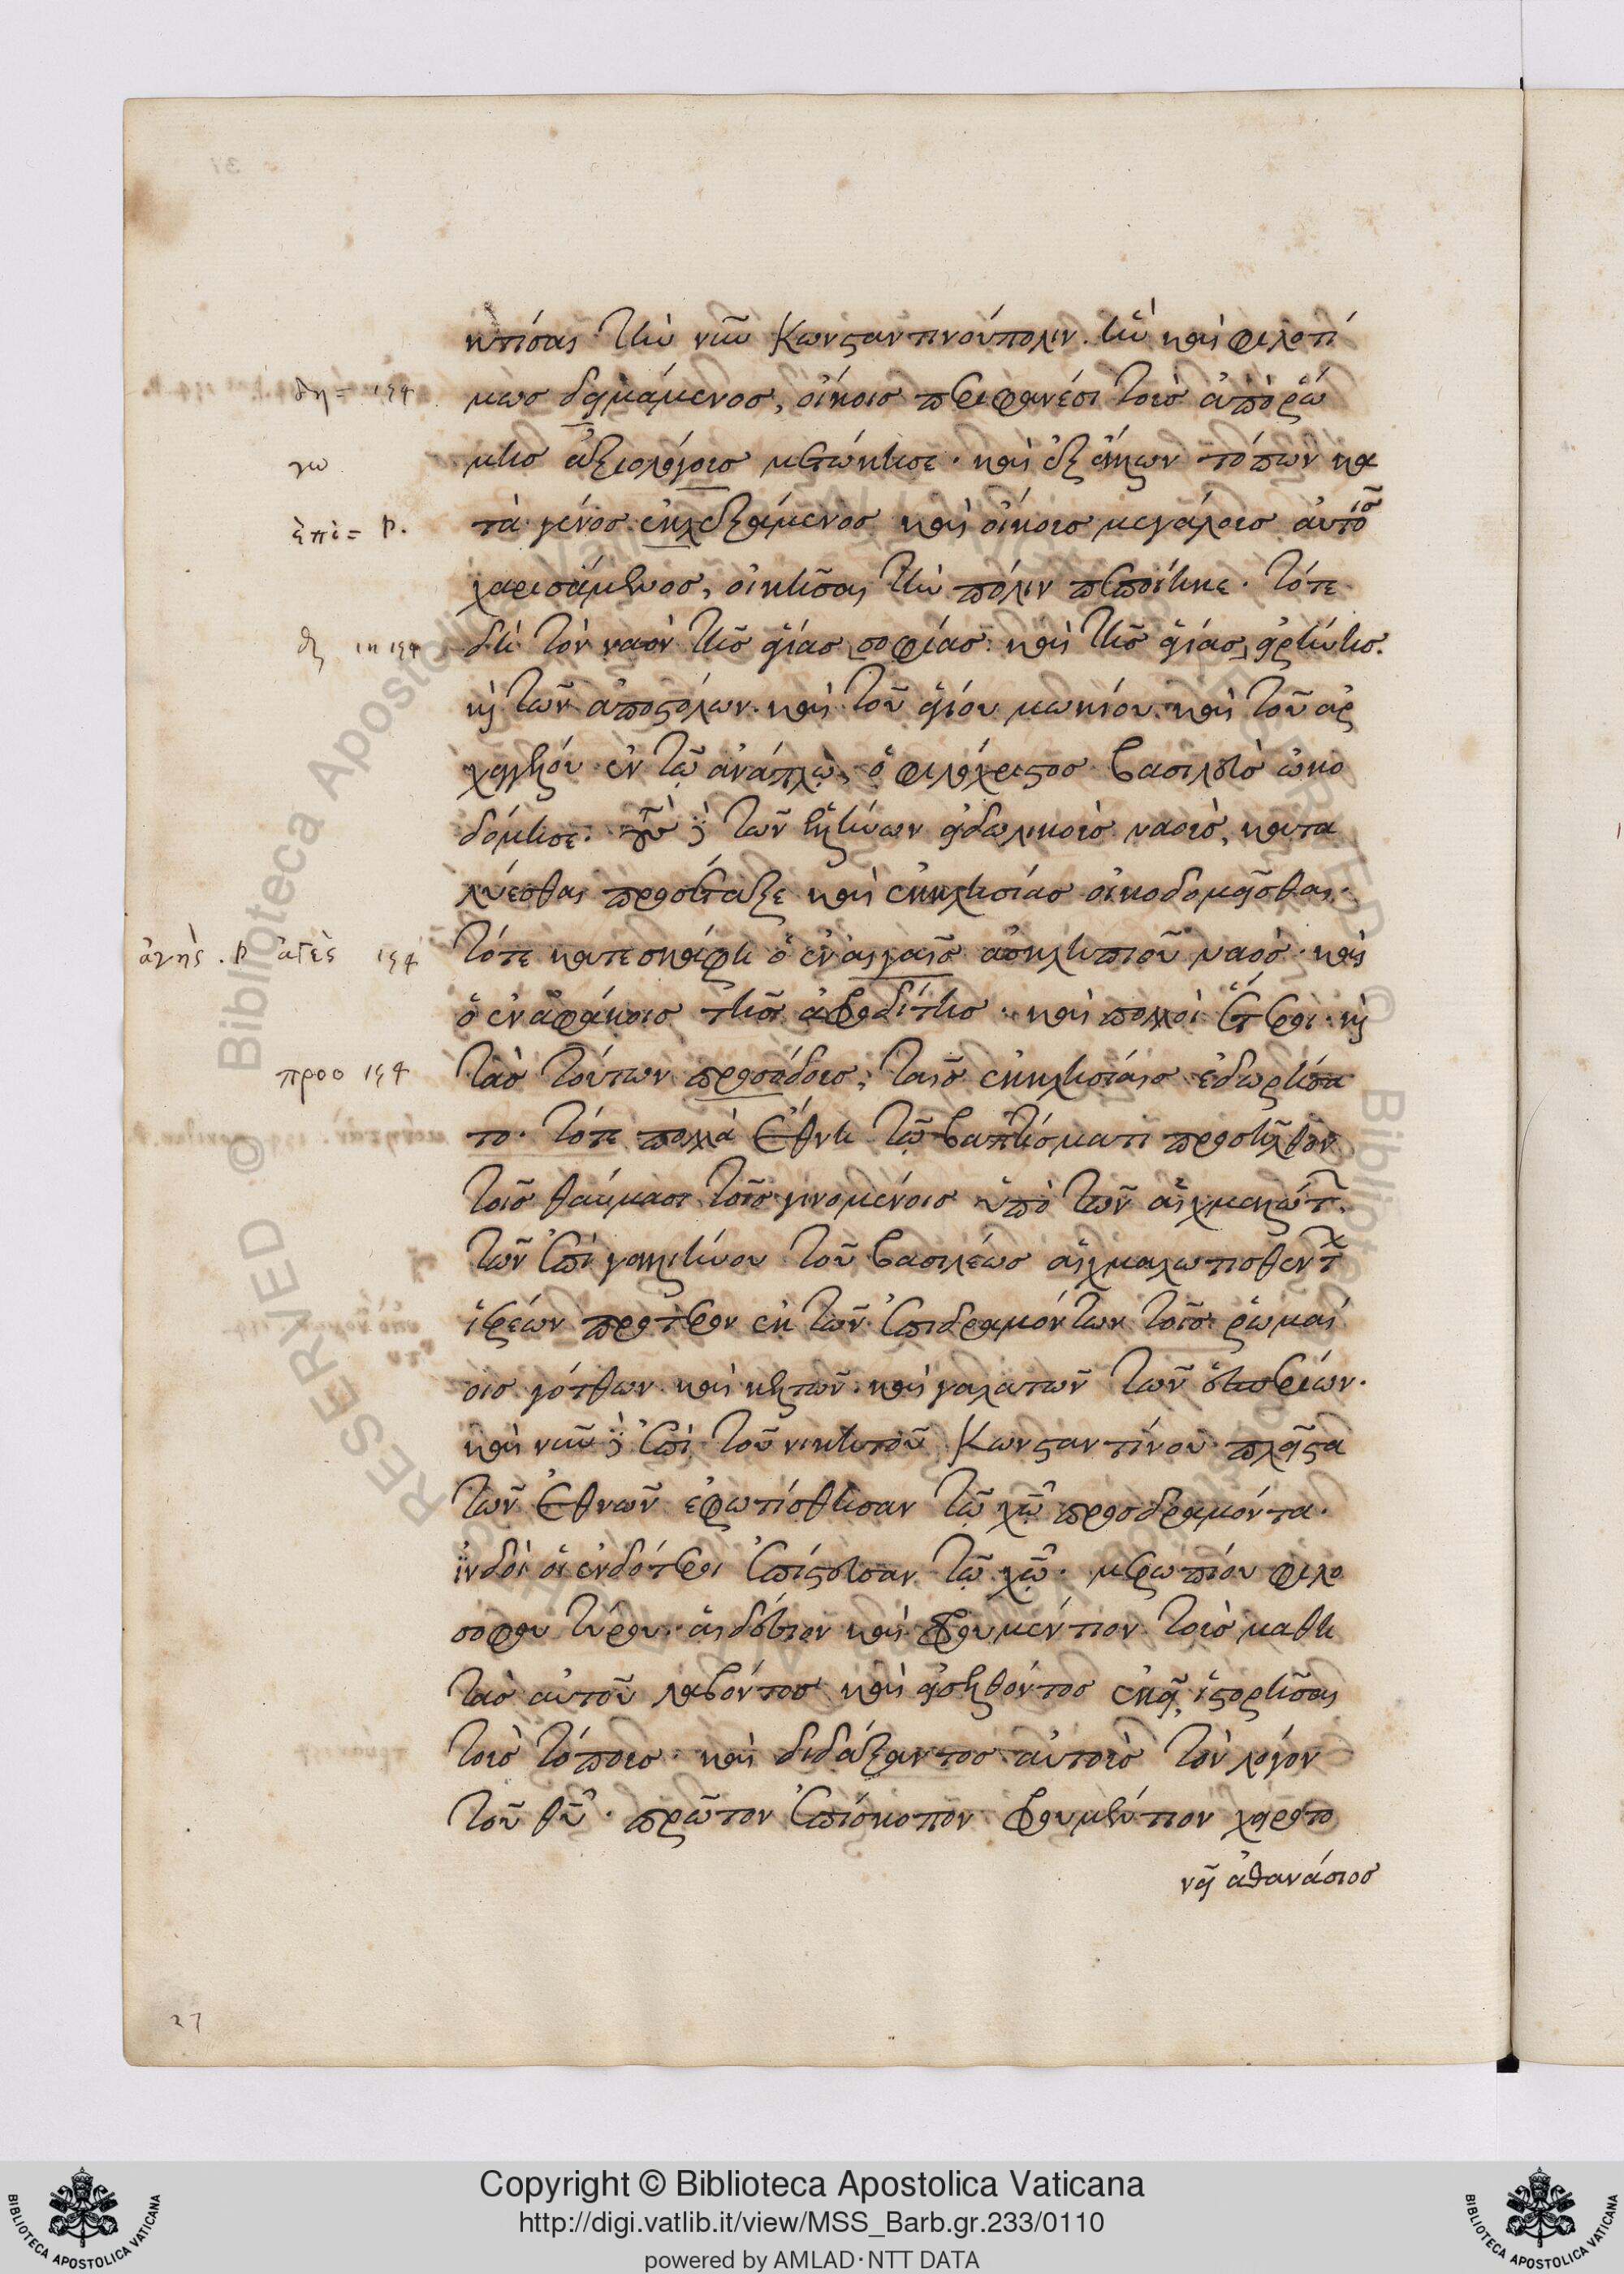 κτίσας τὴν νέαν Κωνσταντινούπολιν. ἣν καὶ φιλοτί
δη= μως δειμάμενος, οἴκοις περιφανέσι τοὺς ἀπὸ ῥώ
γω μης ἀξιολόγους μετώκησε. καὶ ἐξ ἄλλων τόπων κα
ἐπὶ= Ρ. τὰ γένος ἐκλεξάμενος καὶ οἴκους μεγάλους αὐτοῖς
χαρισάμενος, οἰκῆσαι τὴν πόλιν πεποίηκε. τότε
δὴ τὸν ναὸν τῆς ἁγίας σοφίας καὶ τῆς ἁγίας εἰρήνης.
καὶ τῶν ἀποστόλων. καὶ τοῦ ἁγίου μωκίου. καὶ τοῦ ἀρ
χαγγέλου ἐν τῷ ἀνάπλῳ, ὁ φιλόχριστος βασιλεὺς ὠκο
δόμησε. τοὺς δὲ τῶν ἑλλήνων εἰδωλικοὺς ναοὺς, κατα
λύεσθαι προσέταξε καὶ ἐκκλησίας οἰκοδομεῖσθαι.
τότε κατεσκάφη ὁ ἐν αἰγαῖς ἀσκληπιοῦ ναὸς. καὶ
ὁ ἐν ἀφάκοις τῆς ἀφροδίτης. καὶ πολλοὶ ἕτεροι. καὶ
προσ τὰς τούτων προσόδους, ταῖς ἐκκλησίαις ἐδωρήσα
το. τότε πολλὰ ἔθνη τῷ βαπτίσματι προσῆλθον
τοῖς θαύμασι τοῖς γινομένοις ὑπὸ τῶν αἰχμαλώτ.
τῶν ἐπὶ γαλλιήνου τοῦ βασιλέως αἰχμαλωτισθέντ
ἱερέων πρότερον ἐκ τῶν ἐπιδραμόντων τοῖς ῥωμαί
οις γότθων. καὶ κελτῶν. καὶ γαλατῶν τῶν ἑσπερίων.
καὶ νῦν δὲ ἐπὶ τοῦ νικητοῦ Κωνσταντίνου πλεῖστα
τῶν ἐθνῶν ἐφωτίσθησαν τῷ χῷ προσδραμόντα.
ἰνδοὶ οἱ ἐνδότεροι ἐπίστευσαν τῷ χῷ. μεροπίου φιλο
σόφου τύρου. αἰδέσιον καὶ φρουμέντιον τοὺς μαθη
τὰς αὐτοῦ λαβόντος καὶ εἰσελθόντος ἐκεῖ, ἱστορῆσαι
τοὺς τόπους. καὶ διδάξαντος αὐτοὺς τὸν λόγον
τοῦ θῦ. πρῶτον ἐπίσκοπον φρουμέντιον χειροτο
νεῖ ἀθανάσιος
27
RESERVED © Biblioteca Apostolica Vaticana
Copyright © Biblioteca Apostolica Vaticana
http://digi.vatlib.it/view/MSS_Barb.gr.233/0110
powered by AMLAD·NTT DATA
BIBLIOTECA APOSTOLICA VATICANA
BIBLIOTECA APOSTOLICA VATICANA